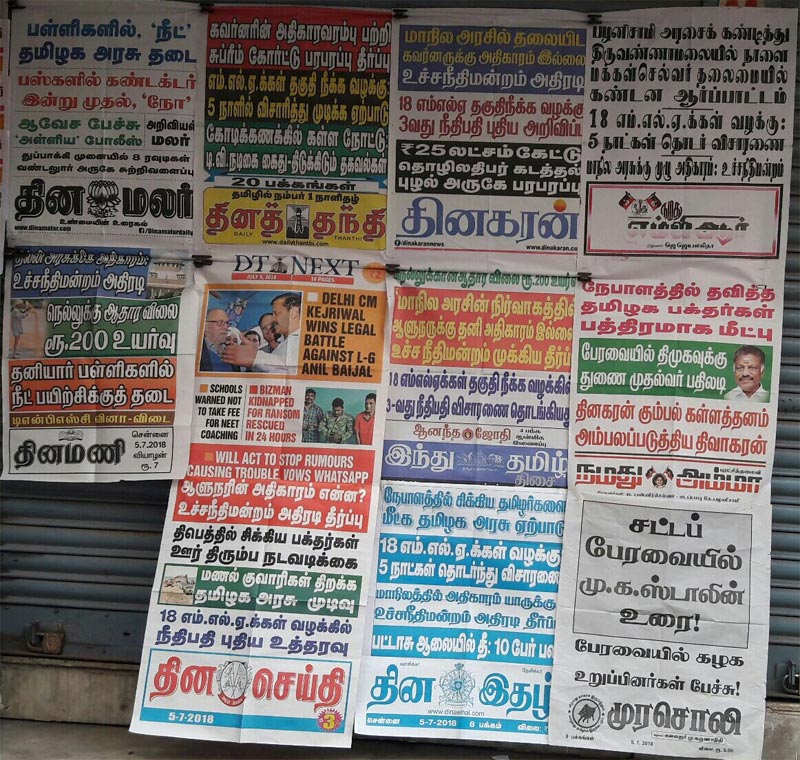 பள்ளிகளில், 'நீட்'
தமிழக அரசு தடை
பஸ்களில் கண்டக்டர்
இன்று முதல், 'நோ'
ஆவேச பேச்சு
'அள்ளிய' போலீஸ்
அறிவியல்
மலர்
துப்பாக்கி முனையில் 8 ரவுடிகள்
வண்டலூர் அருகே சுற்றிவளைப்பு
தின மலர்
உண்மையின் உரைகல்
www.dinamalar.com
/Dinamalardaily
கவர்னரின் அதிகாரவரம்பு பற்றி
சுப்ரீம் கோர்ட்டு பரபரப்பு தீர்ப்பு
எம்.எல்.ஏ.க்கள் தகுதி நீக்க வழக்கு
5 நாளில் விசாரித்து முடிக்க ஏற்பாடு
கோடிக்கணக்கில் கள்ள நோட்டு:
டி.வி.நடிகை கைது-திடுக்கிடும் தகவல்கள்
20 பக்கங்கள்
தமிழில் நம்பர் 1 நாளிதழ்
தினத் தந்தி
DAILY THANTHI
www.dailythanthi.com
மாநில அரசில் தலையிட
கவர்னருக்கு அதிகாரம் இல்லை
உச்சநீதிமன்றம் அதிரடி
18 எம்எல்ஏ தகுதிநீக்க வழக்கு
3வது நீதிபதி புதிய அறிவிப்பு
₹25 லட்சம் கேட்டு
தொழிலதிபர் கடத்தல்
புழல் அருகே பரபரப்பு
தினகரன்
/dinakarannews
www.dinakaran.com
பழனிசாமி அரசைக் கண்டித்து
திருவண்ணாமலையில் நாளை
மக்கள்செல்வர் தலைமையில்
கண்டன ஆர்ப்பாட்டம்
18 எம்.எல்.ஏ.க்கள் வழக்கு:
5 நாட்கள் தொடர் விசாரணை
மாநில அரசுக்கு முழு அதிகாரம்: உச்சநீதிமன்றம்
அரசுக்கே அதிகாரம்:
உச்சநீதிமன்றம் அதிரடி
நெல்லுக்கு ஆதார விலை
ரூ.200 உயர்வு
தனியார் பள்ளிகளில்
நீட் பயிற்சிக்குத் தடை
டிஎன்பிஎஸ்சி வினா-விடை
தினமணி
சென்னை
5.7.2018
வியாழன்
ரூ. 7
DT NEXT
JULY 5, 2018
16 PAGES
DELHI CM
KEJRIWAL
WINS LEGAL
BATTLE
AGAINST L-G
ANIL BAIJAL
SCHOOLS
WARNED NOT
TO TAKE FEE
FOR NEET
COACHING
BIZMAN
KIDNAPPED
FOR RANSOM
RESCUED
IN 24 HOURS
WILL ACT TO STOP RUMOURS
CAUSING TROUBLE VOWS WHATSAPP
நெல்லுக்கான ஆதார விலை ரூ.200 உயர்வு
மாநில அரசின் நிர்வாகத்தில்
ஆளுநருக்கு தனி அதிகாரம் இல்லை
உச்ச நீதிமன்றம் முக்கிய தீர்ப்பு
18 எம்எல்ஏக்கள் தகுதி நீக்க வழக்கில்
3-வது நீதிபதி விசாரணை தொடங்கியது
ஆனந்த ஜோதி
4 பக்க
ஆன்மிக
இணைப்பு
இந்து தமிழ்
திசை
நேபாளத்தில் தவித்த
தமிழக பக்தர்கள்
பத்திரமாக மீட்பு
பேரவையில் திமுகவுக்கு
துணை முதல்வர் பதிலடி
தினகரன் கும்பல் கள்ளத்தனம்
அம்பலப்படுத்திய திவாகரன்
நமது அம்மா
ஆளுநரின் அதிகாரம் என்ன?
உச்சநீதிமன்றம் அதிரடி தீர்ப்பு
திபெத்தில் சிக்கிய பக்தர்கள்
ஊர் திரும்ப நடவடிக்கை
மணல் குவாரிகள் திறக்க
தமிழக அரசு முடிவு
18 எம்.எல்.ஏ.க்கள் வழக்கில்
நீதிபதி புதிய உத்தரவு
தின செய்தி
5-7-2018
3
நேபாளத்தில் சிக்கிய தமிழர்களை
மீட்க தமிழக அரசு ஏற்பாடு
18 எம்.எல்.ஏ.க்கள் வழக்கு
5 நாட்கள் தொடர்ந்து விசாரணை
மாநிலத்தில் அதிகாரம் யாருக்கு
உச்சநீதிமன்றம் அதிரடி தீர்ப்பு
பட்டாசு ஆலையில் தீ: 10 பேர் பலி
தின இதழ்
www.dinaethal.com
சென்னை
5-7-2018
8 பக்கம்
விலை:
சட்டப்
பேரவையில்
மு.க.ஸ்டாலின்
உரை!
பேரவையில் கழக
உறுப்பினர்கள் பேச்சு!
முரசொலி
5. 7. 2018